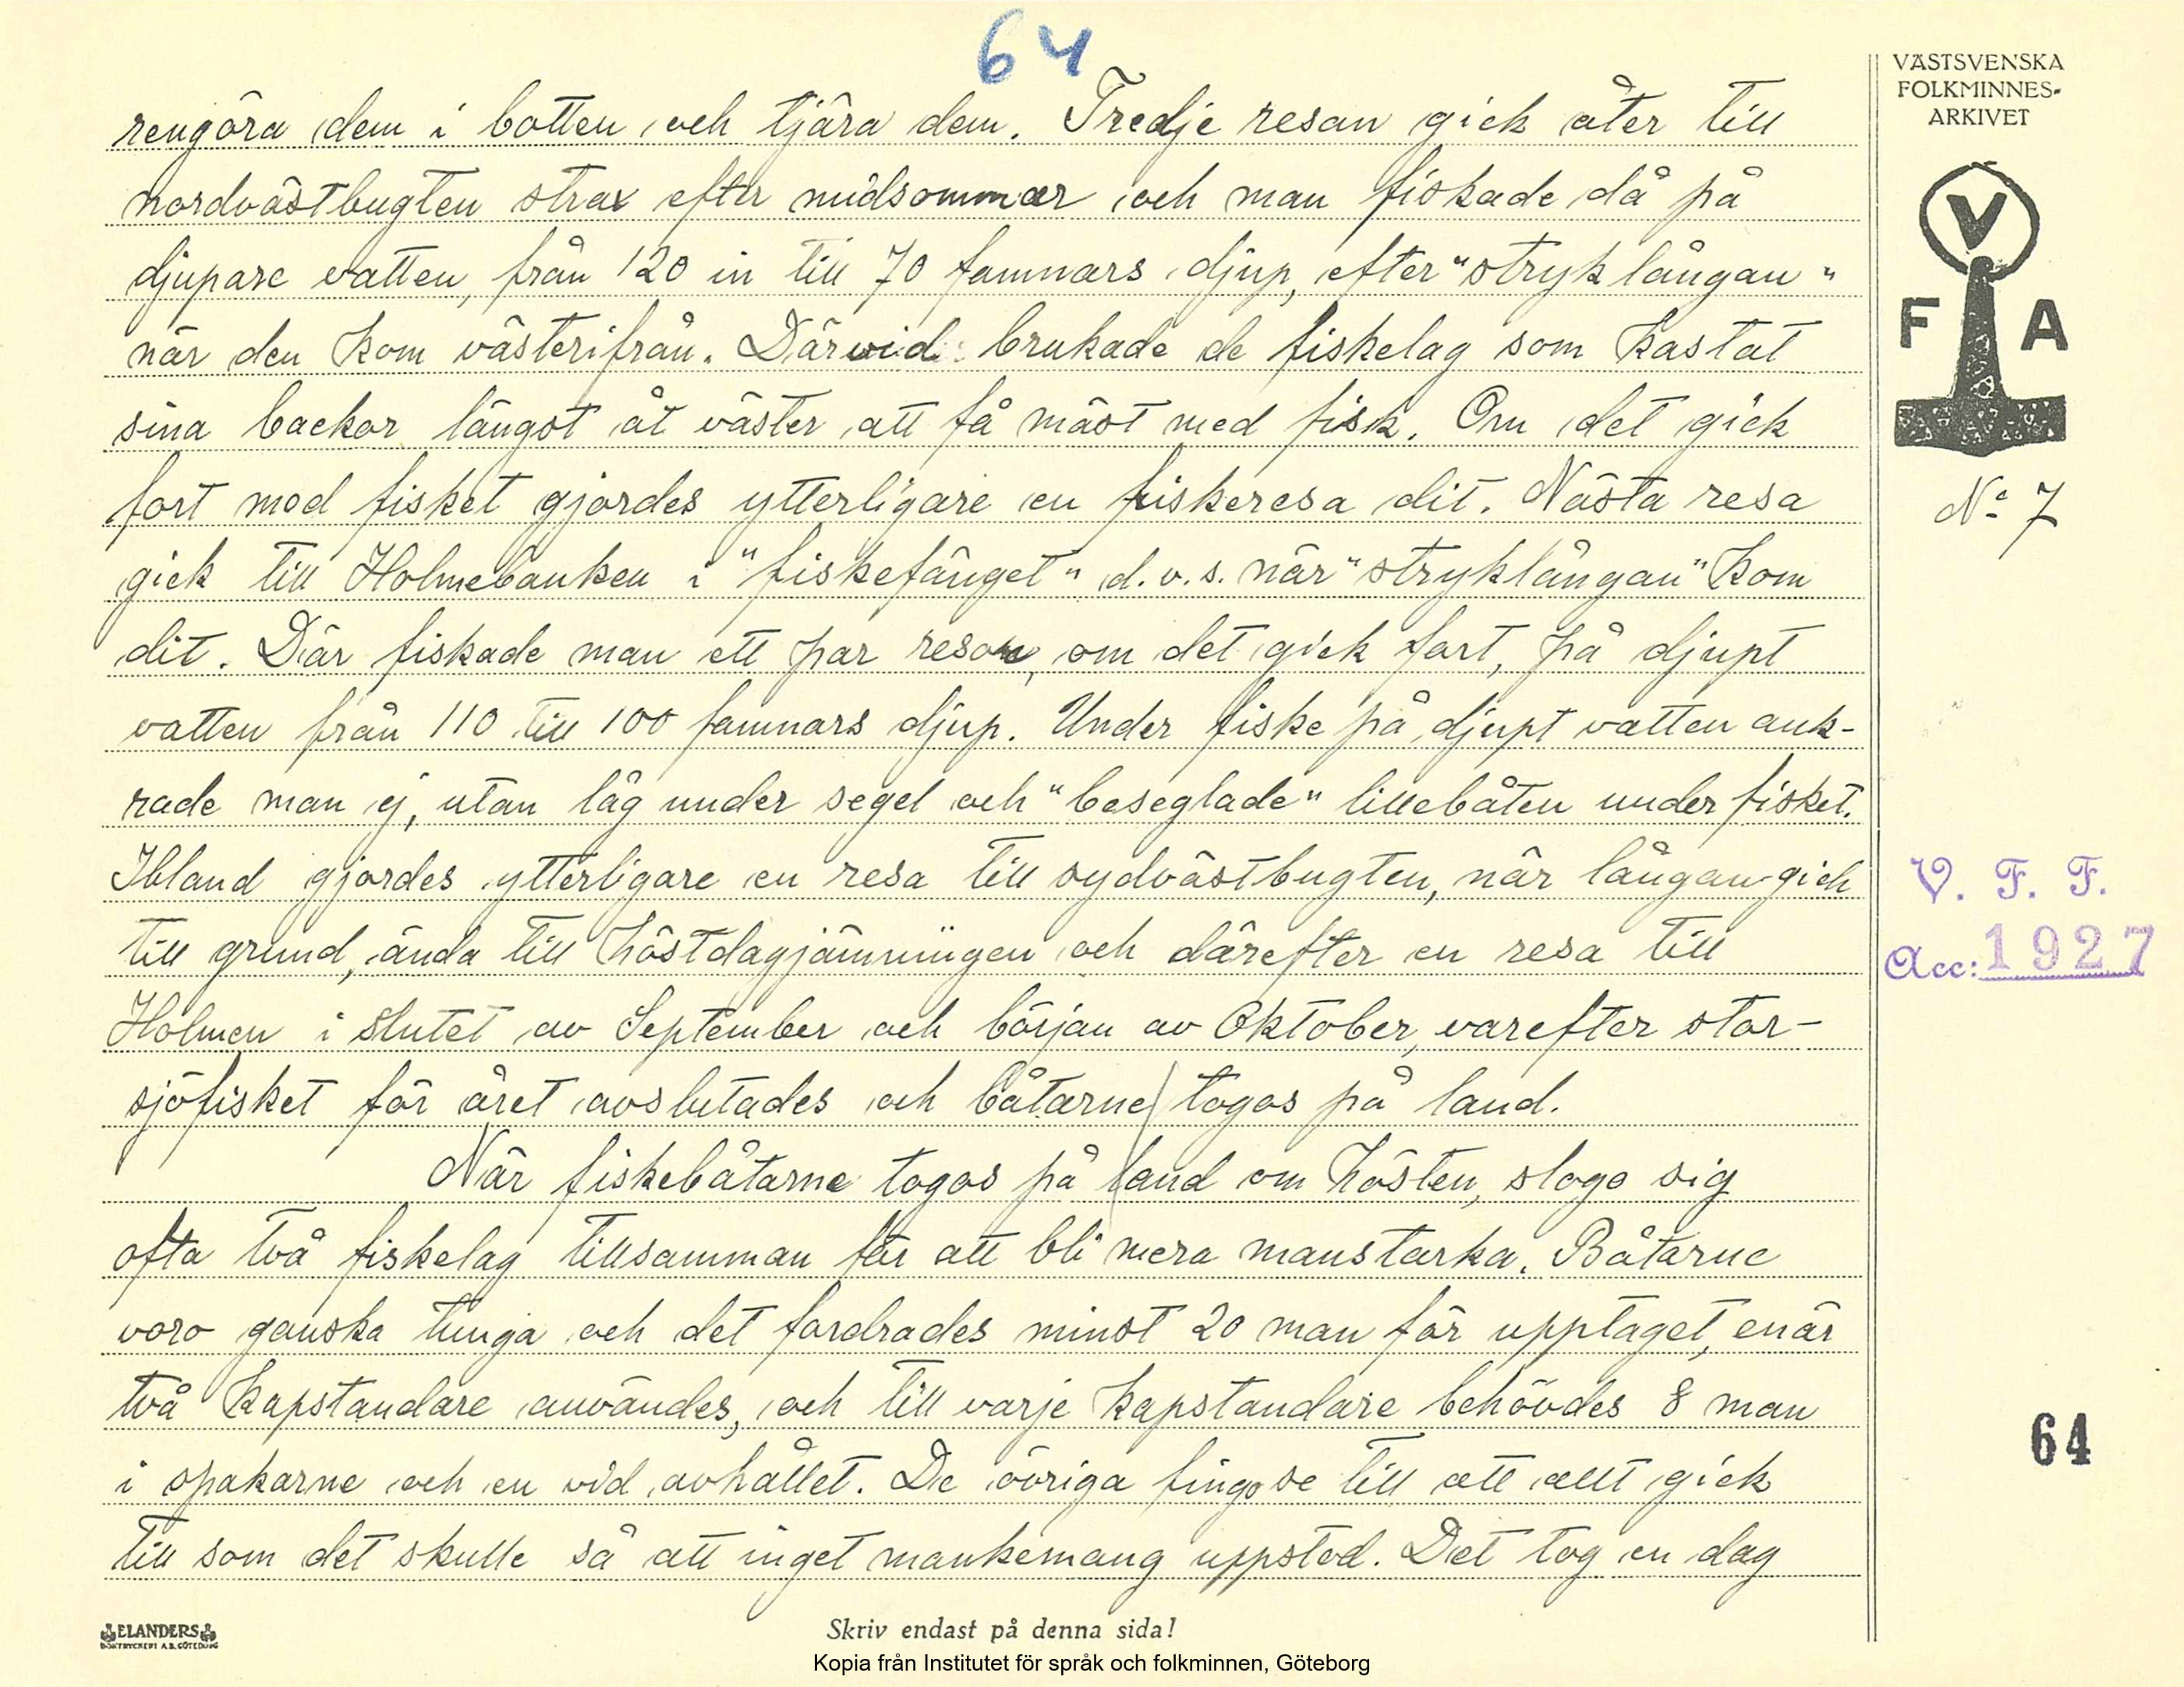 64
rengöra dem i botten och tjära dem. Tredje resan gick åter till
nordvästbugten strax efter midsommar och man fiskade då på
djupare vatten, från 120 in till 70 famnars djup, efter "stryklångan"
när den kom västerifrån. Därvid brukade de fiskelag som kastat
sina backor längst åt väster att få mäst med fisk. Om det gick
fort med fisket gjordes ytterligare en fiskeresa dit. Nästa resa
gick till Holmebanken i "fiskefänget" d.v.s. när "stryklångan" kom
dit. Där fiskade man ett par resor, om det gick fort, på djupt
vatten från 110 till 100 famnars djup. Under fiske på djupt vatten ank-
rade man ej, utan låg under segel och "beseglade" lillebåten under fisket.
Ibland gjordes ytterligare en resa till sydvästbugten, när långan gick
till grund, ända till höstdagjämningen och därefter en resa till
Holmen i slutet av September och början av Oktober, varefter stor-
sjöfisket för året avslutades och båtarne togos på land.
När fiskebåtarne togos på land om hösten, slogo sig
ofta två fiskelag tillsamman för att bli mera manstarka. Båtarne
voro ganska tunga och det fordrades minst 20 man för upptaget, enär
två kapstandare användes, och till varje kapstandare behövdes 8 man
i spakarne och en vid avhållet. De övriga fingo se till att allt gick
till som det skulle så att inget mankemang uppstod. Det tog en dag
VÄSTSVENSKA
FOLKMINNES-
ARKIVET
V
F A
No 7
V. F. F.
Acc: 1927
64
ELANDERS
BOKTRYCKERI A.B. GÖTEBORG
Skriv endast på denna sida!
Kopia från Institutet för språk och folkminnen, Göteborg